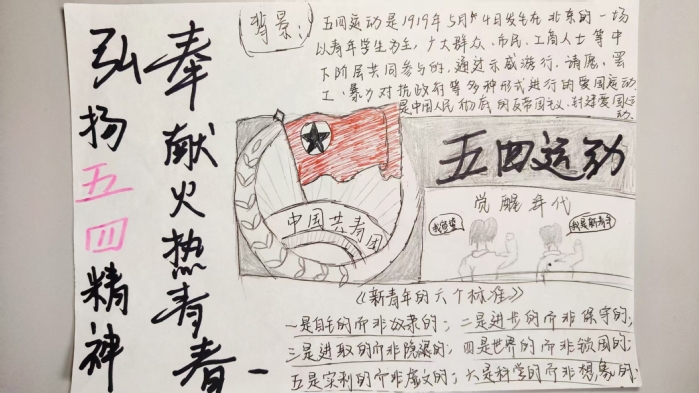 弘扬五四精神
奉献火热青春
背景：
五四运动是1919年5月4日发生在北京的一场
以青年学生为主，广大群众、市民、工商人士等中
下阶层共同参与的，通过示威游行、请愿、罢
工、暴力对抗政府等多种形式进行的爱国运动，
是中国人民彻底的反帝国主义、封建爱国运
动.
中国共青团
五四运动
觉醒年代
我是新青年
《新青年的六个标准》
一是自主的而非奴隶的；二是进步的而非保守的；
三是进取的而非隐退的；四是世界的而非锁国的；
五是实利的而非虚文的；六是科学的而非想象的.